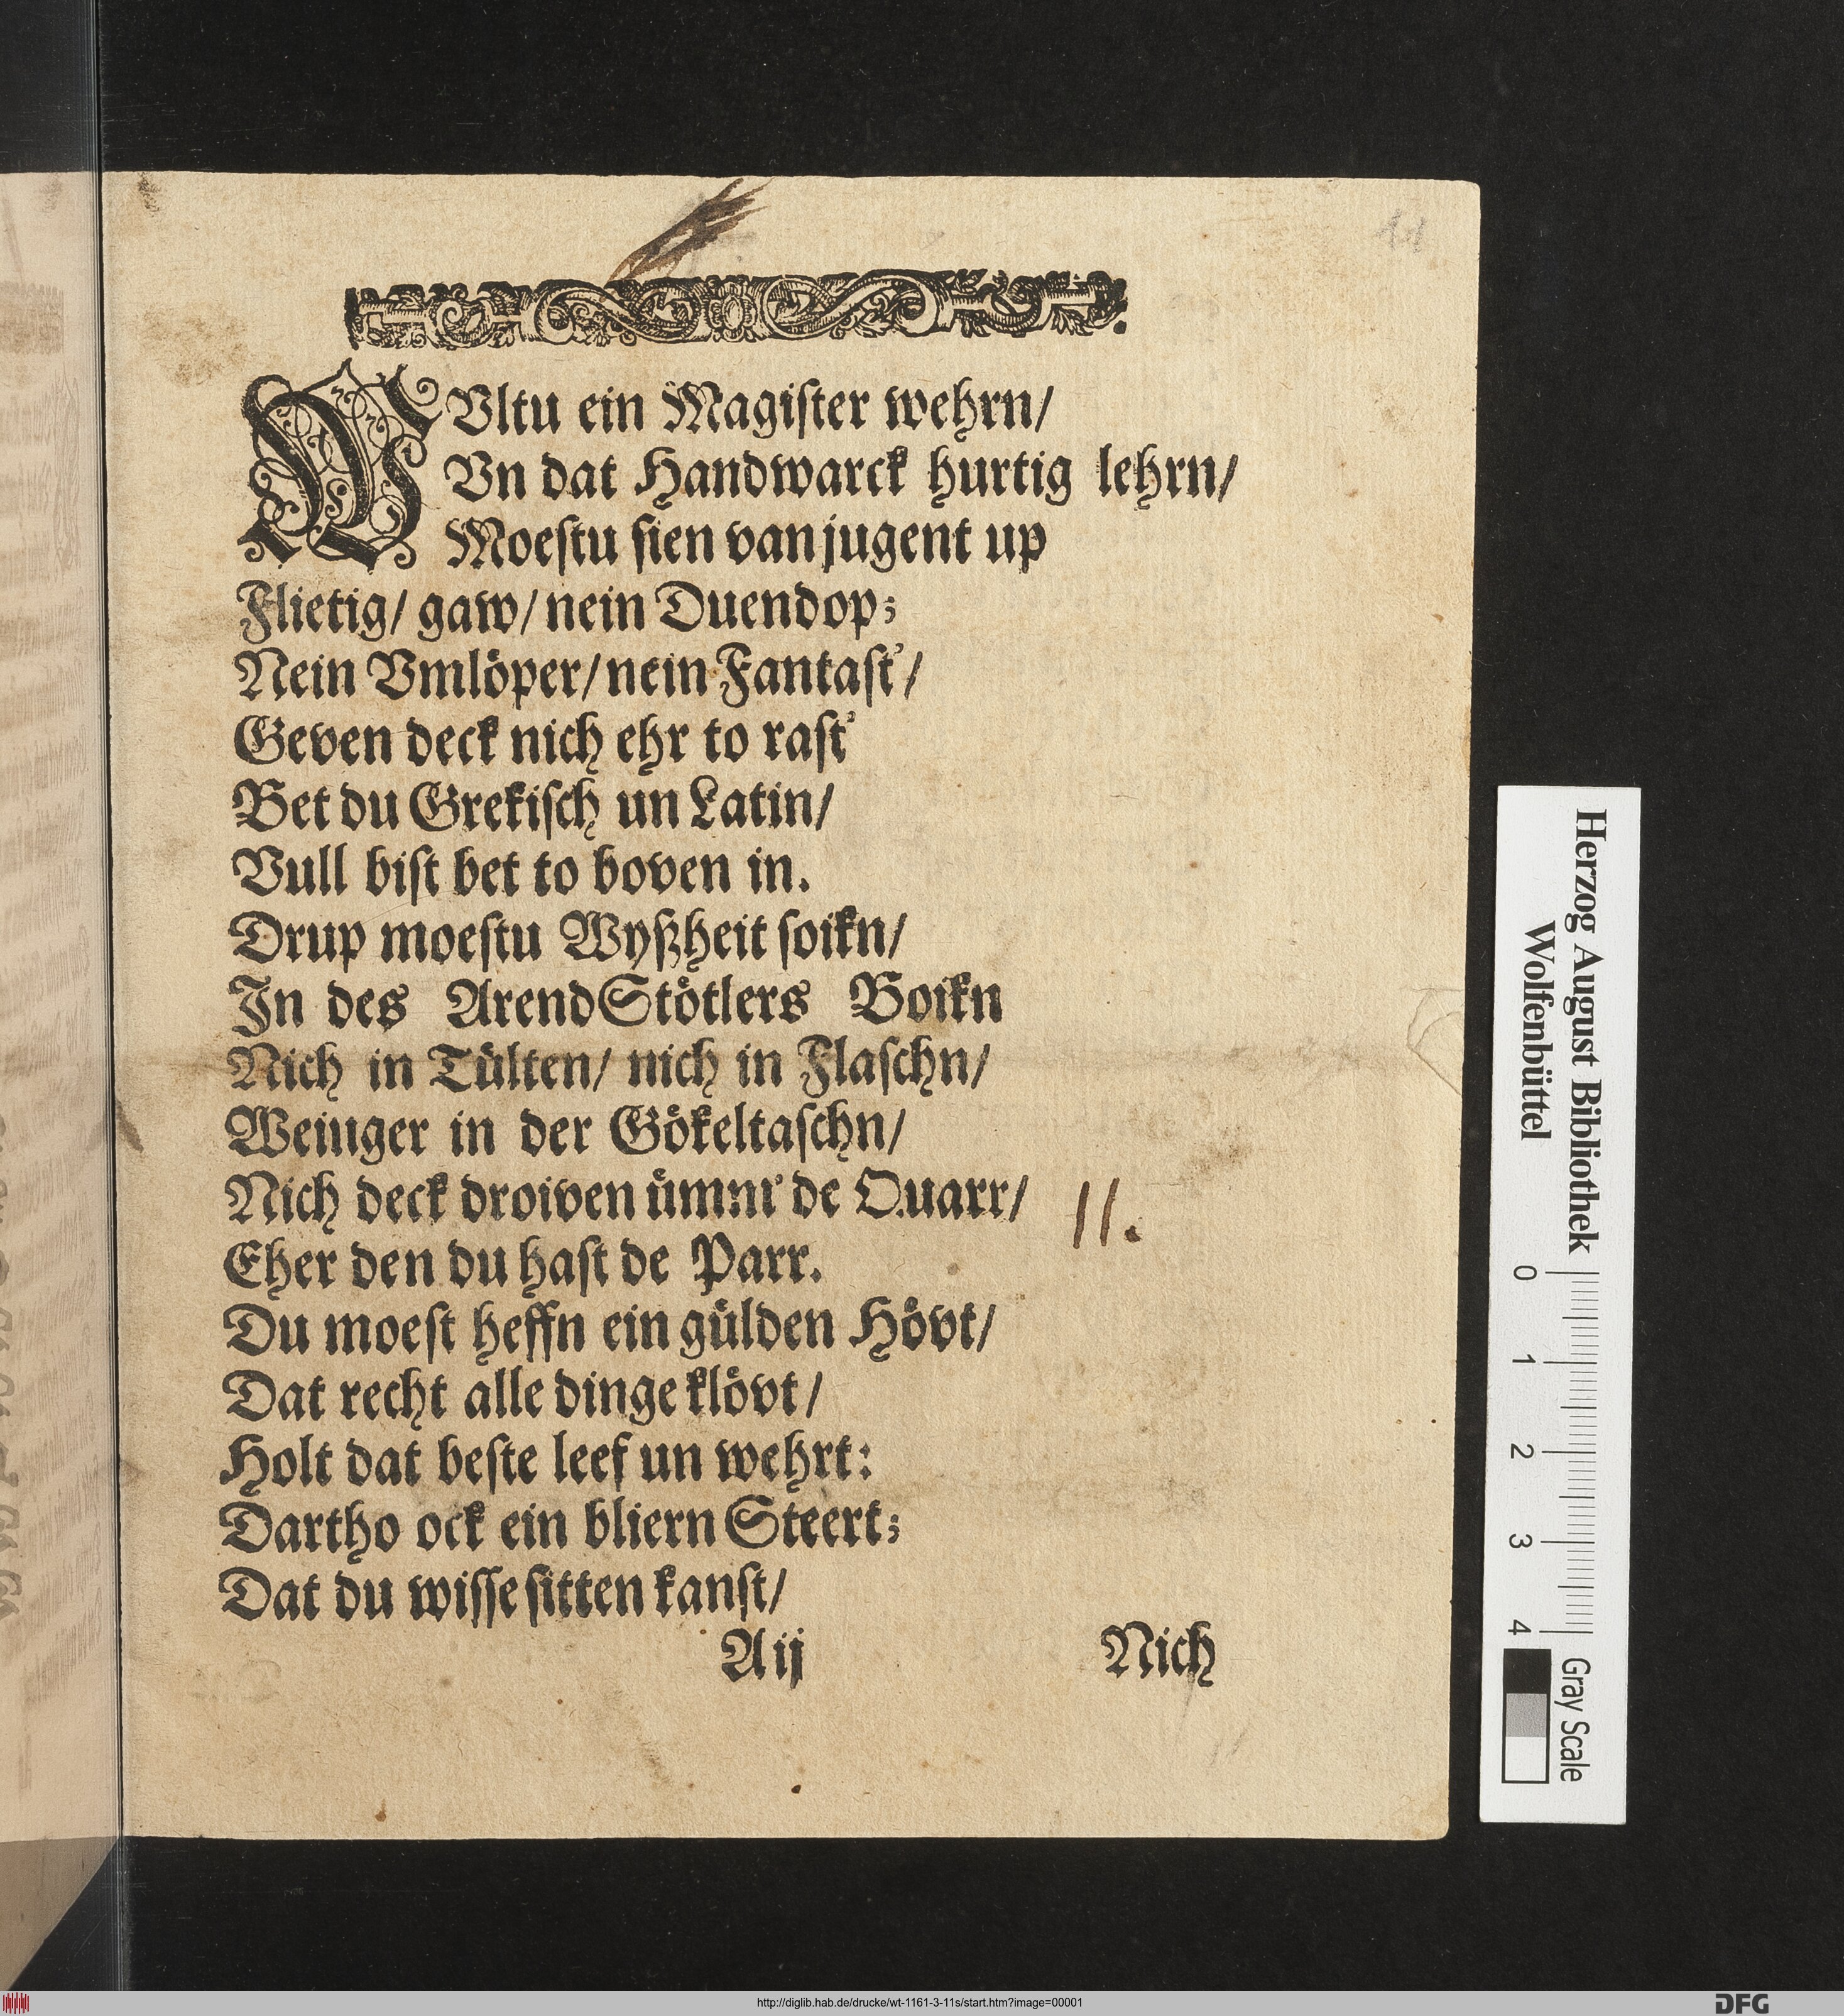 11
WUltu ein Magiſter wehrn/
Vn dat Handwarck hurtig lehrn/
Moeſtu ſien van jugent up
Flietig/ gaw/ nein Duendop;
Nein Vmlöper/ nein Fantaſt'/
Geven deck nich ehr to raſt'
Bet du Grekiſch un Latin/
Vull biſt bet to boven in.
Drup moeſtu Wyßheit ſoikn/
In des ArendStötlers Boikn
Nich in Tülten/ nich in Flaſchn/
Weiuger in der Gökeltaſchn/
Nich deck droiven ümm' de Quarr/
11.
Eher den du haſt de Parr.
Du moeſt heffn ein gülden Hövt/
Dat recht alle dinge klövt/
Holt dat beſte leef un wehrt:
Dartho ock ein bliern Steert;
Dat du wiſſe ſitten kanſt/
A ij
Nich
Herzog August Bibliothek
Wolfenbüttel
0 1 2 3 4
Gray Scale
http://diglib.hab.de/drucke/wt-1161-3-11s/start.htm?image=00001
DFG